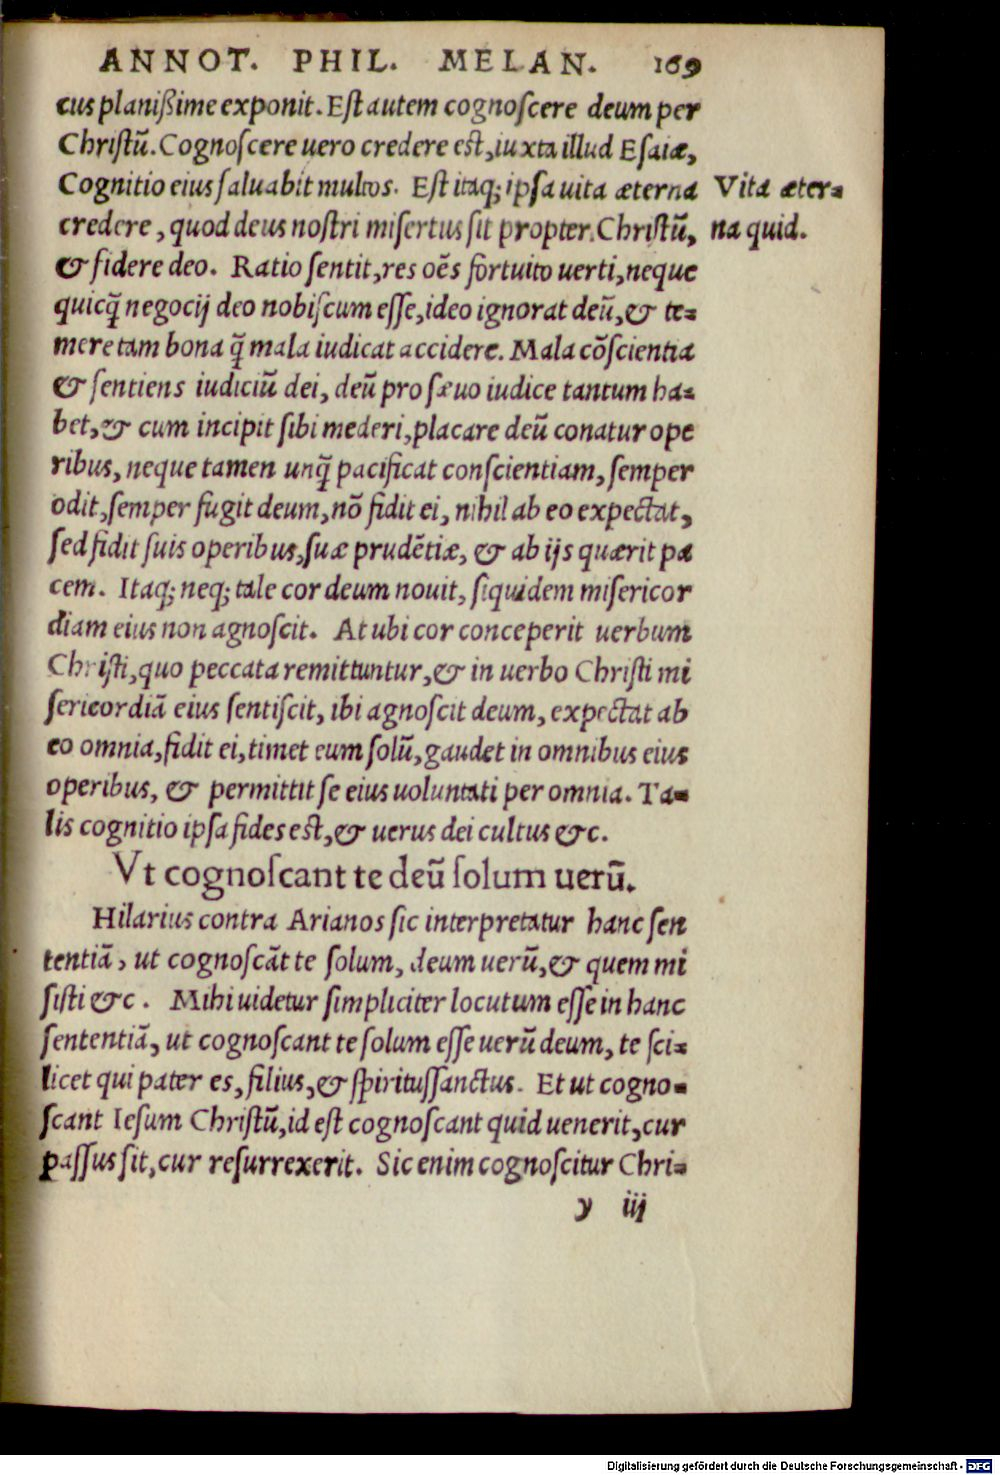 ANNOT. PHIL. MELAN. 169
cus planißime exponit. Est autem cognoscere deum per
Christũ. Cognoscere uero credere est, iuxta illud Esaiæ,
Cognitio eius saluabit multos. Est itaq; ipsa uita æterna
Vita æter=
credere, quod deus nostri misertus sit propter Christũ,
na quid.
& fidere deo. Ratio sentit, res oẽs fortuito uerti, neque
quicq̃ negocij deo nobiscum esse, ideo ignorat deũ, & te=
mere tam bona q̃ mala iudicat accidere. Mala cõscientia
& sentiens iudiciũ dei, deũ pro sæuo iudice tantum ha=
bet, & cum incipit sibi mederi, placare deũ conatur ope
ribus, neque tamen unq̃ pacificat conscientiam, semper
odit, semper fugit deum, nõ fidit ei, nihil ab eo expectat,
sed fidit suis operibus, suæ prudẽtiæ, & ab ijs quærit pa
cem. Itaq; neq; tale cor deum nouit, siquidem misericor
diam eius non agnoscit. At ubi cor conceperit uerbum
Christi, quo peccata remittuntur, & in uerbo Christi mi
sericordiã eius sentiscit, ibi agnoscit deum, expectat ab
eo omnia, fidit ei, timet eum solũ, gaudet in omnibus eius
operibus, & permittit se eius uoluntati per omnia. Ta=
lis cognitio ipsa fides est, & uerus dei cultus &c.
Vt cognoscant te deũ solum uerũ.
Hilarius contra Arianos sic interpretatur hanc sen
tentiã, ut cognoscãt te solum, deum uerũ, & quem mi
sisti &c. Mihi uidetur simpliciter locutum esse in hanc
sententiã, ut cognoscant te solum esse uerũ deum, te sci=
licet qui pater es, filius, & spiritussanctus. Et ut cogno=
scant Iesum Christũ, id est cognoscant quid uenerit, cur
passus sit, cur resurrexerit. Sic enim cognoscitur Chri=
y iij
Digitalisierung gefördert durch die Deutsche Forschungsgemeinschaft - DFG